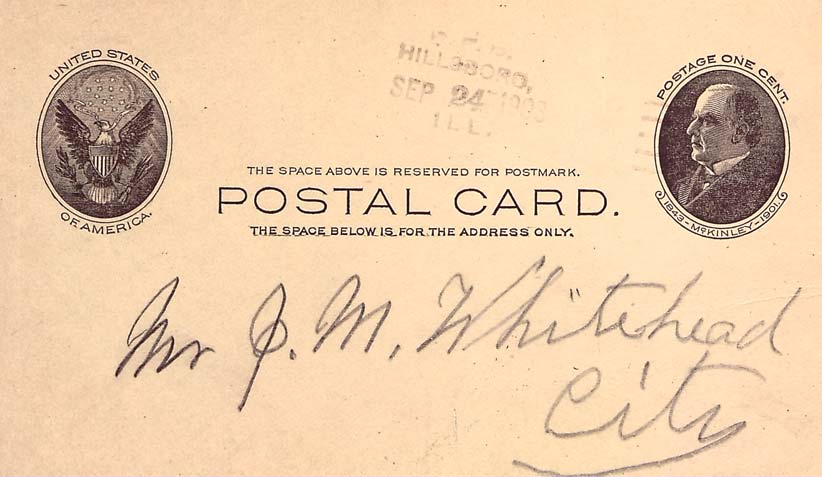 UNITED STATES
OF AMERICA.
HILLSBORO,
SEP 24 1903
ILL.
POSTAGE ONE CENT.
1843-McKINLEY-1901.
THE SPACE ABOVE IS RESERVED FOR POSTMARK.
POSTAL CARD.
THE SPACE BELOW IS FOR THE ADDRESS ONLY.
Mr J. M. Whitehead
City